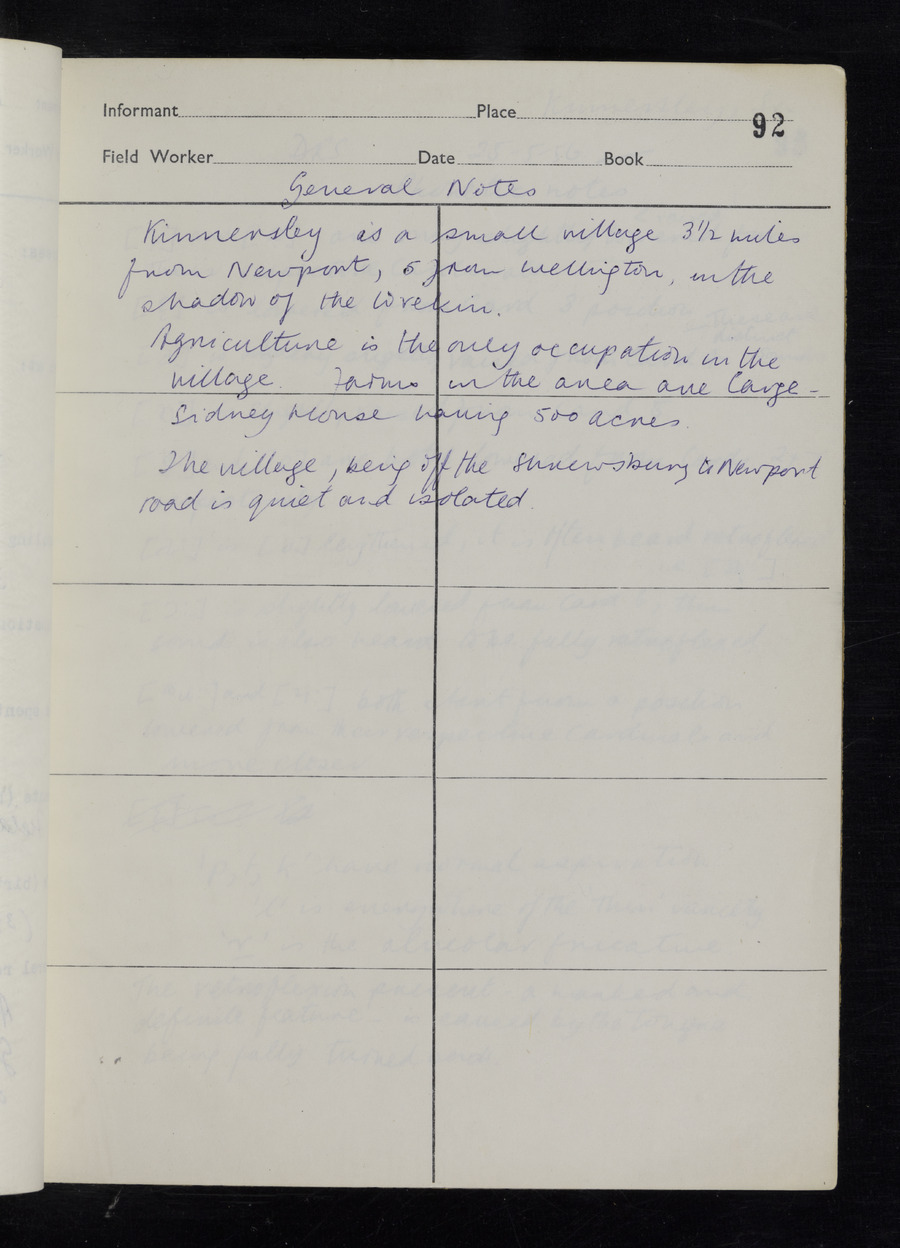 Informant Place
92
Field Worker Date Book
General Notes
Kinnersley is a small village 3½ miles
from Newport, 5 from Wellington, in the
shadow of the Wrekin.
Agriculture is the only occupation in the
village. Farms in the area are large –
Sidney House having 500 acres.
The village, being off the Shrewsbury to Newport
road is quiet and isolated.